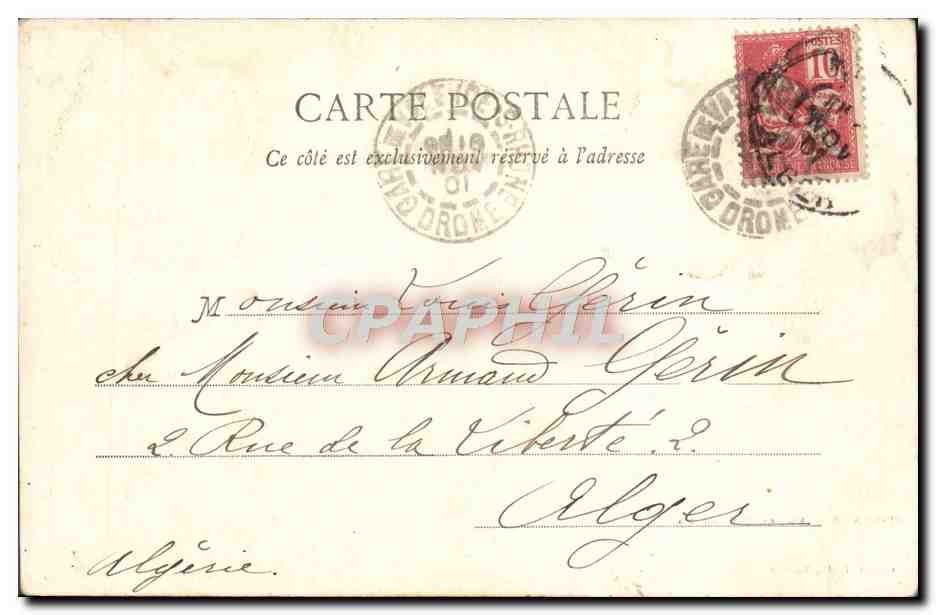 CARTE POSTALE
Ce côté est exclusivement réservé à l'adresse
POSTES
10
GARE DE VALENCE DROME
10 NOV 01
GARE DE VA DROME
CPAPHIL
Monsieur Louis Gérin
cher Monsieur Armand Gérin
2. Rue de la Liberté. 2.
Alger
Algérie.